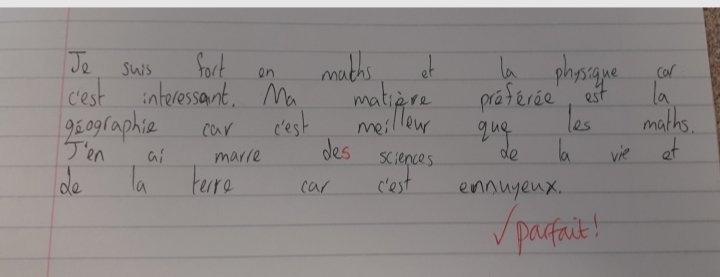 Je suis fort en maths et la physique car
c'est interessant. Ma matière préférée est la
géographie car c'est meilleur que les maths.
J'en ai marre des sciences de la vie et
de la terre car c'est ennuyeux.
✓ parfait!